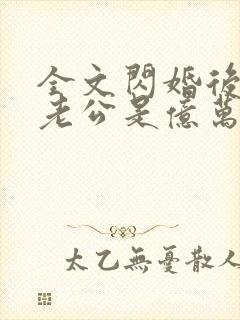 全文閃婚後
老公是億萬
太乙無憂散人